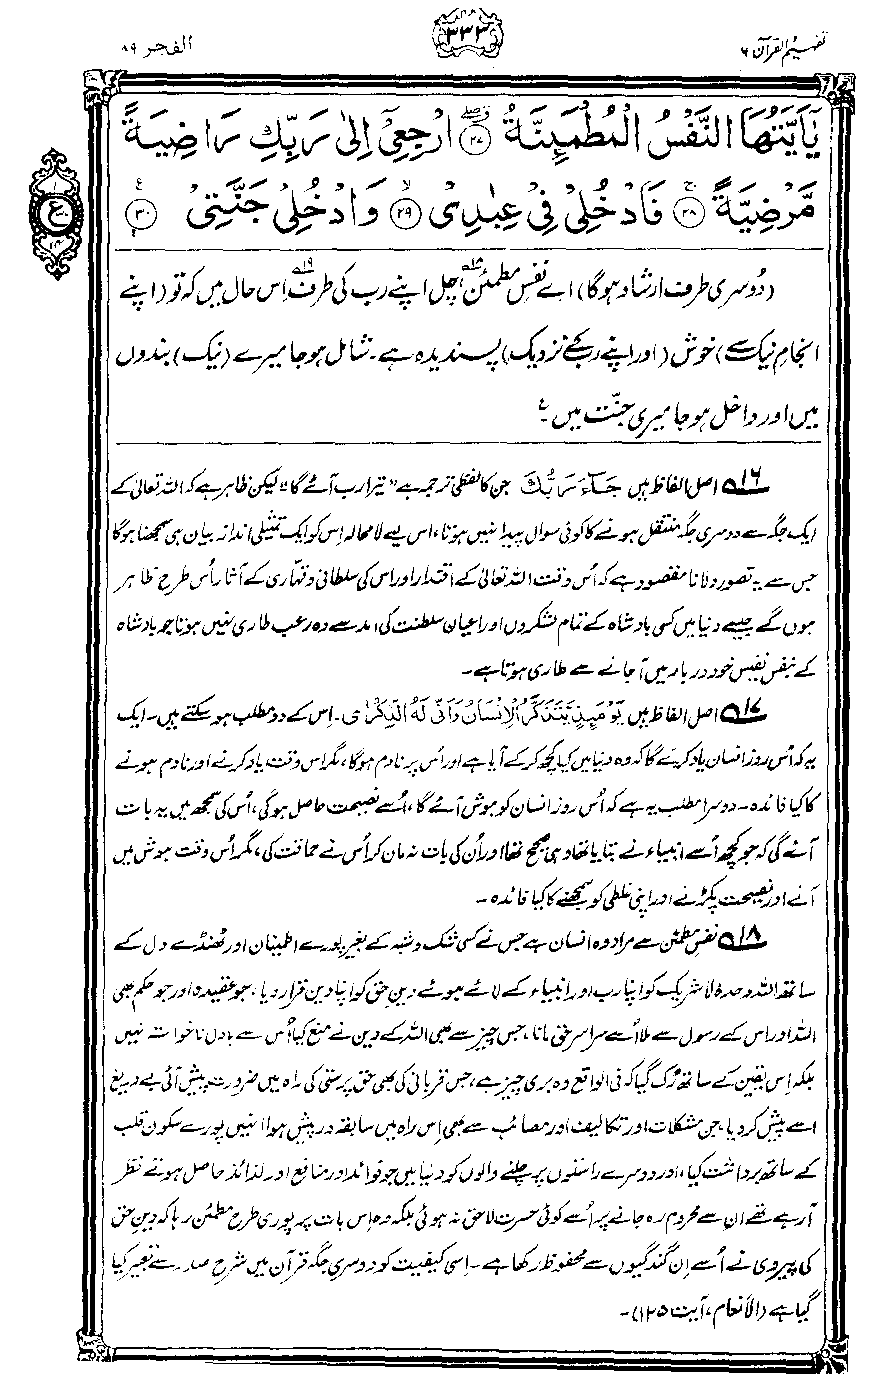 تفہیم القرآن ۶
۳۳۳
الفجر ۸۹
يٰۤاَيَّتُهَا النَّفْسُ الْمُطْمَىِٕنَّةُ ﴿۲۷﴾ ارْجِعِيْۤ اِلٰى رَبِّكِ رَاضِيَةً
مَّرْضِيَّةً ﴿۲۸﴾ فَادْخُلِيْ فِيْ عِبٰدِيْ ﴿۲۹﴾ وَادْخُلِيْ جَنَّتِيْ ﴿۳۰﴾
ع
(دُوسری طرف ارشاد ہوگا) اے نفسِ مطمئن۱۸، چل اپنے رب کی طرف۱۹ اِس حال میں کہ تو (اپنے
انجامِ نیک سے) خوش (اور اپنے رب کے نزدیک) پسندیدہ ہے۔ شامل ہو جا میرے (نیک) بندوں
میں اور داخل ہو جا میری جنّت میں۔ ع
۱۶ اصل الفاظ ہیں جَآءَ رَبُّكَ جن کا لفظی ترجمہ ہے ”تیرا رب آئے گا“ لیکن ظاہر ہے کہ اللہ تعالیٰ کے
ایک جگہ سے دوسری جگہ منتقل ہونے کا کوئی سوال پیدا نہیں ہوتا، اس لیے لامحالہ اِس کو ایک تمثیلی اندازِ بیان ہی سمجھنا ہوگا
جس سے یہ تصور دلانا مقصود ہے کہ اُس وقت اللہ تعالیٰ کے اقتدار اور اس کی سلطانی و قہاری کے آثار اُس طرح ظاہر
ہوں گے جیسے دنیا میں کسی بادشاہ کے تمام لشکروں اور اعیانِ سلطنت کی آمد سے وہ رعب طاری نہیں ہوتا جو بادشاہ
کے بنفسِ نفیس خود دربار میں آ جانے سے طاری ہوتا ہے۔
۱۷ اصل الفاظ ہیں يَوْمَىِٕذٍ يَّتَذَكَّرُ الْاِنْسَانُ وَاَنّٰى لَهُ الذِّكْرٰى۔ اِس کے دو مطلب ہو سکتے ہیں۔ ایک
یہ کہ اُس روز انسان یاد کرے گا کہ وہ دنیا میں کیا کچھ کر کے آیا ہے اور اُس پر نادم ہوگا، مگر اس وقت یاد کرنے اور نادم ہونے
کا کیا فائدہ۔ دوسرا مطلب یہ ہے کہ اُس روز انسان کو ہوش آئے گا، اُسے نصیحت حاصل ہوگی، اُس کی سمجھ میں یہ بات
آئے گی کہ جو کچھ اُسے انبیاء نے بتایا تھا وہی صحیح تھا اور اُن کی بات نہ مان کر اُس نے حماقت کی، مگر اُس وقت ہوش میں
آنے اور نصیحت پکڑنے اور اپنی غلطی کو سمجھنے کا کیا فائدہ۔
۱۸ نفسِ مطمئن سے مراد وہ انسان ہے جس نے کسی شک و شبہ کے بغیر پورے اطمینان اور ٹھنڈے دل کے
ساتھ اللہ وحدہٗ لا شریک کو اپنا رب اور انبیاء کے لائے ہوئے دینِ حق کو اپنا دین قرار دیا، جو عقیدہ اور جو حکم بھی
اللہ اور اس کے رسول سے ملا اُسے سراسر حق مانا، جس چیز سے بھی اللہ کے دین نے منع کیا اُس سے بادلِ ناخواستہ نہیں
بلکہ اِس یقین کے ساتھ رُک گیا کہ فی الواقع وہ بری چیز ہے، جس قربانی کی بھی حق پرستی کی راہ میں ضرورت پیش آئی بے دریغ
اسے پیش کر دیا، جن مشکلات اور تکالیف اور مصائب سے بھی اِس راہ میں سابقہ درپیش ہوا انہیں پورے سکونِ قلب
کے ساتھ برداشت کیا، اور دوسرے راستوں پر چلنے والوں کو دنیا میں جو فوائد اور منافع اور لذائذ حاصل ہوتے نظر
آ رہے تھے ان سے محروم رہ جانے پر اُسے کوئی حسرت لاحق نہ ہوئی بلکہ وہ اِس بات پر پوری طرح مطمئن رہا کہ دینِ حق
کی پیروی نے اُسے اِن گندگیوں سے محفوظ رکھا ہے۔ اِسی کیفیت کو دوسری جگہ قرآن میں شرحِ صدر سے تعبیر کیا
گیا ہے (الانعام، آیت ۱۲۵)۔